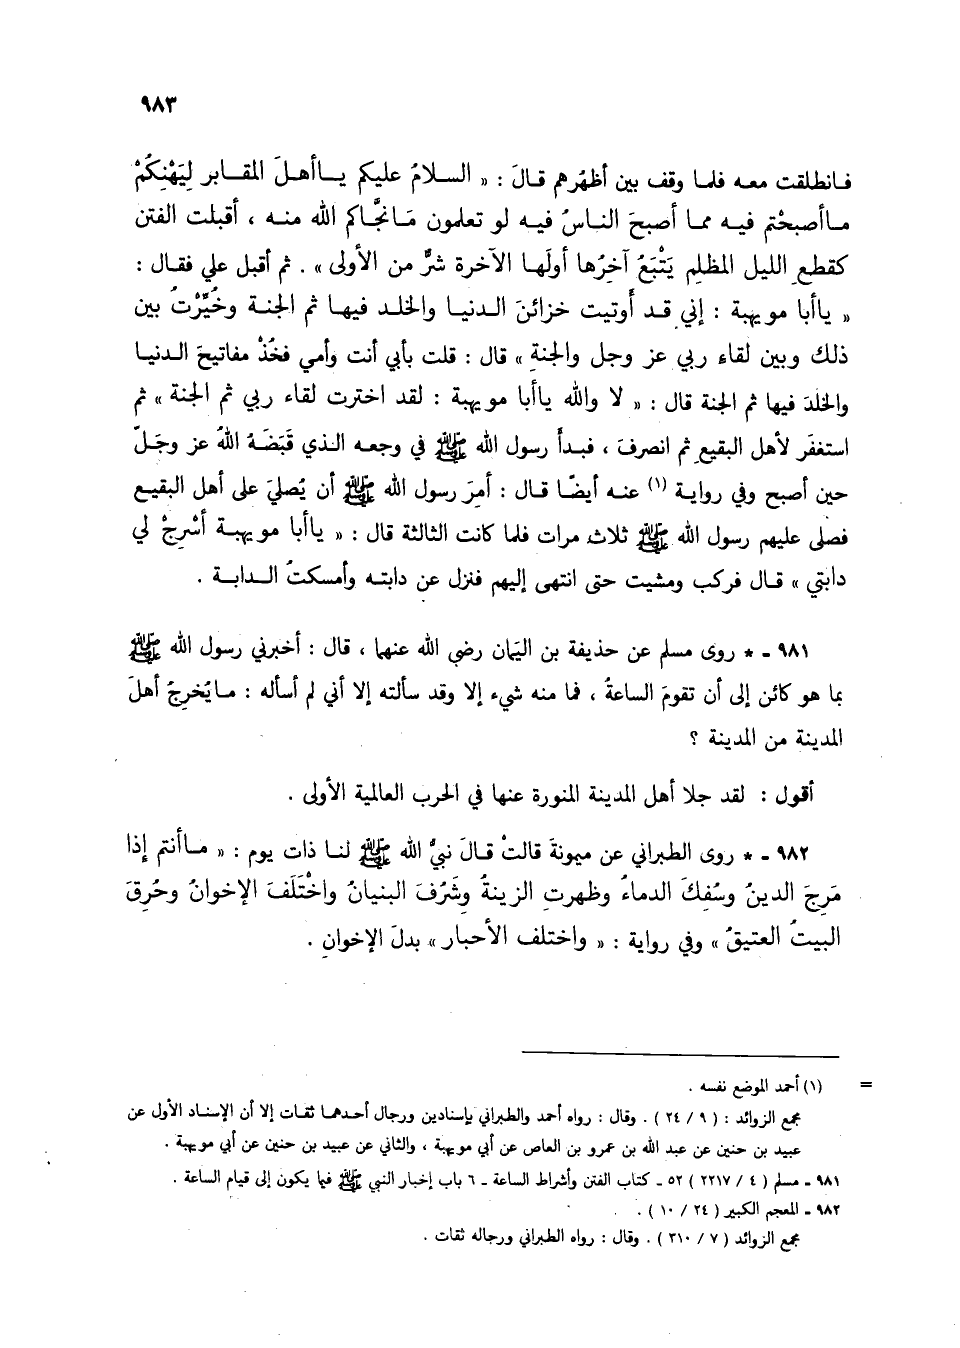 ٩٨٣
فانطلقت معه فلما وقف بين أظهُرهم قالَ : « السلامُ عليكم ياأهلَ المقابر لِيَهْنِكُمْ
ماأصبحْتم فيه مما أصبحَ الناسُ فيه لو تعلمون مَانجَّاكم الله منه ، أقبلت الفتن
كقطعِ الليل المظلمِ يَتْبَعُ آخِرُها أولَها الآخرة شرٌّ من الأولى » . ثم أقبل علي فقال :
« ياأبا مويهبة : إني قد أُوتيت خزائنَ الدنيا والخلد فيها ثم الجنة وخُيِّرْتُ بين
ذلك وبين لقاء ربي عز وجل والجنةِ » قال : قلت بأبي أنت وأمي فخُذْ مفاتيحَ الدنيا
والخلدَ فيها ثم الجنة قال : « لا والله ياأبا مويهبة : لقد اخترت لقاء ربي ثم الجنة » ثم
استغفَر لأهل البقيعِ ثم انصرفَ ، فبدأَ رسول الله ﷺ في وجعه الذي قَبَضَهُ اللهُ عز وجَلّ
حين أصبح وفي رواية (١) عنه أيضًا قال : أُمِرَ رسول الله ﷺ أن يُصليَ على أهل البقيع
فصلى عليهم رسول الله ﷺ ثلاث مرات فلما كانت الثالثة قال : « ياأبا مويهبة أَسْرِجْ لي
دابتي » قال فركب ومشيت حتى انتهى إليهم فنزل عن دابته وأمسكتُ الدابة .
٩٨١ - * روى مسلم عن حذيفة بن اليمان رضي الله عنهما ، قال : أخبرني رسول الله ﷺ
بما هو كائن إلى أن تقومَ الساعةُ ، فما منه شيء إلا وقد سألته إلا أني لم أسأله : مايُخرجُ أهلَ
المدينة من المدينة ؟
أقول : لقد جلا أهل المدينة المنورة عنها في الحرب العالمية الأولى .
٩٨٢ - * روى الطبراني عن ميمونةَ قالتْ قالَ نبيُّ الله ﷺ لنا ذات يوم : « ماأنتم إذا
مَرِجَ الدينُ وسُفِكَ الدماءُ وظهرتِ الزينةُ وشَرُفَ البنيانُ واخْتَلَفَ الإخوانُ وحُرِقَ
البيتُ العتيقُ » وفي رواية : « واختلف الأحبار » بدلَ الإخوانِ .
= (١) أحمد الموضع نفسه .
مجمع الزوائد : ( ٩ / ٢٤ ) . وقال : رواه أحمد والطبراني بإسنادين ورجال أحدهما ثقات إلا أن الإسناد الأول عن
عبيد بن حنين عن عبد الله بن عمرو بن العاص عن أبي مويهبة ، والثاني عن عبيد بن حنين عن أبي مويهبة .
٩٨١ - مسلم ( ٤ / ٢٢١٧ ) ٥٢ - كتاب الفتن وأشراط الساعة - ٦ باب إخبار النبي ﷺ فيما يكون إلى قيام الساعة .
٩٨٢ - المعجم الكبير ( ٢٤ / ١٠ ) .
مجمع الزوائد ( ٧ / ٣١٠ ) . وقال : رواه الطبراني ورجاله ثقات .